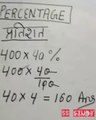 PERCENTAGE
प्रतिशत
400×40%
400×40/100
40×4=160 Ans
SS STUDY